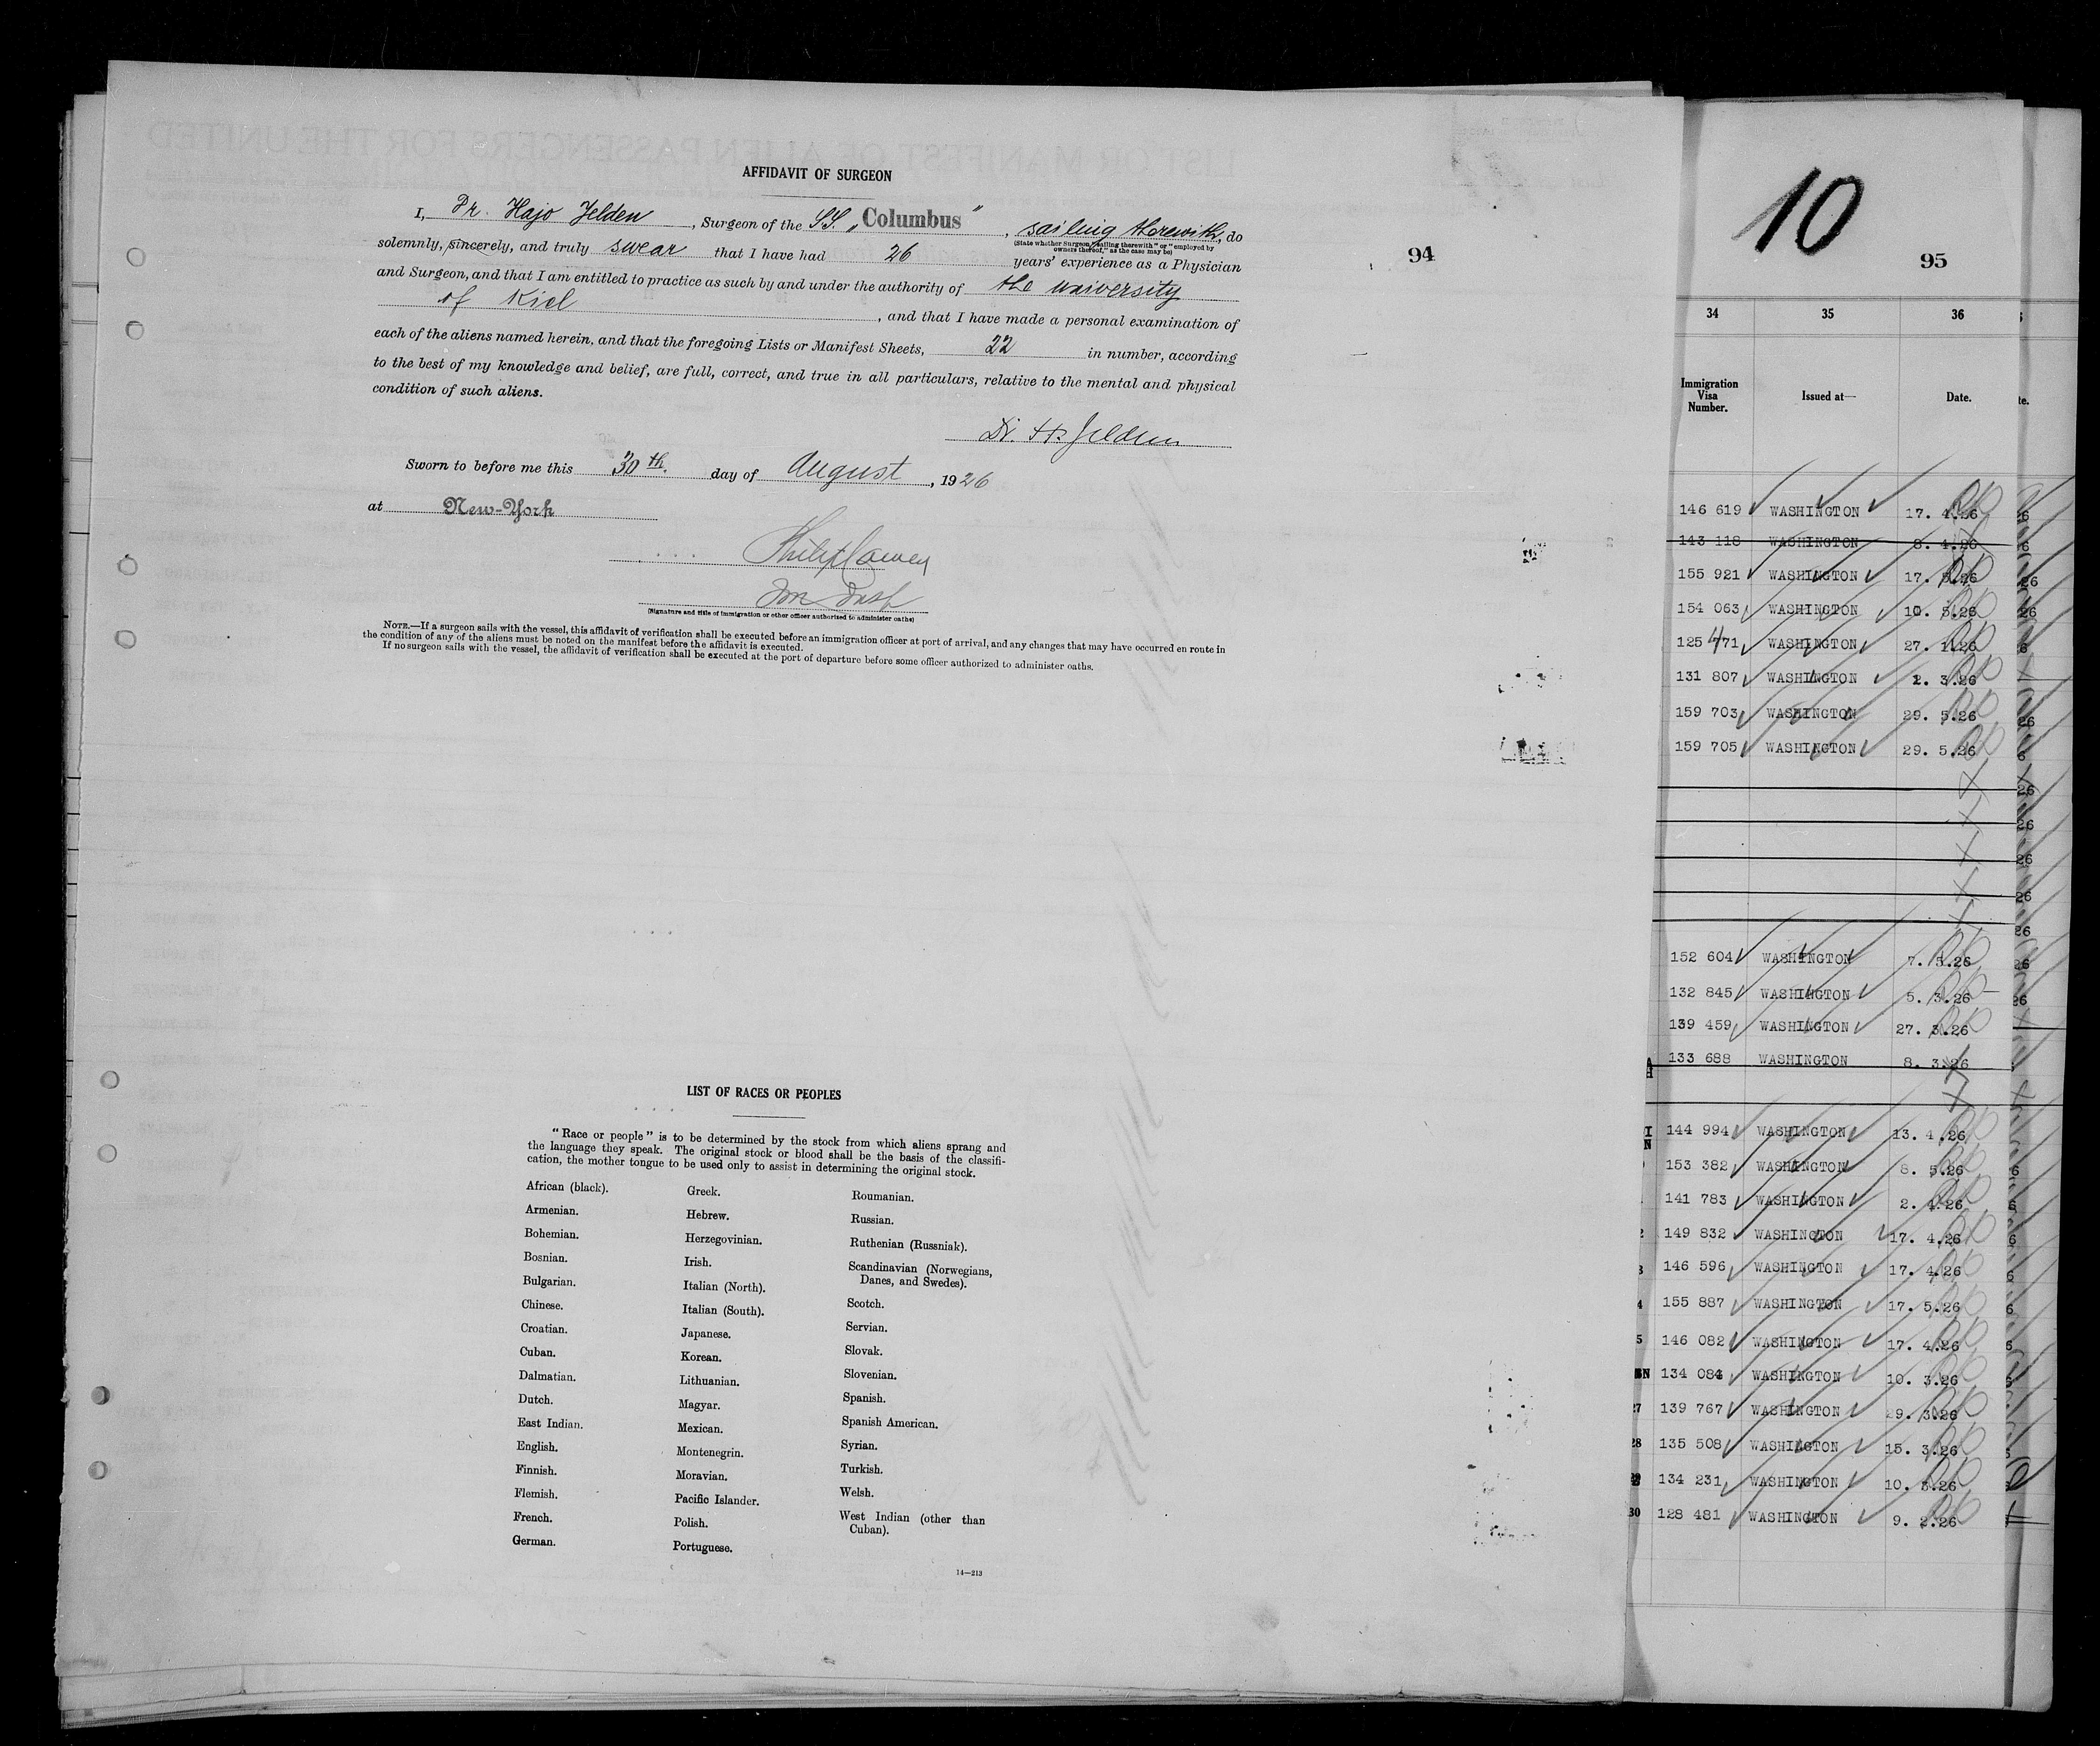 AFFIDAVIT OF SURGEON
I, Dr. Hajo Jelden, Surgeon of the SS. „Columbus", sailing therewith, do
(State whether Surgeon "sailing therewith" or "employed by owners thereof," as the case may be)
solemnly, sincerely, and truly swear that I have had 26 years' experience as a Physician
and Surgeon, and that I am entitled to practice as such by and under the authority of the university
of Kiel, and that I have made a personal examination of
each of the aliens named herein, and that the foregoing Lists or Manifest Sheets, 22 in number, according
to the best of my knowledge and belief, are full, correct, and true in all particulars, relative to the mental and physical
condition of such aliens.
Dr. H. Jelden
Sworn to before me this 30th. day of August, 1926
at New-York
(Signature and title of immigration or other officer authorized to administer oaths)
NOTE.—If a surgeon sails with the vessel, this affidavit of verification shall be executed before an immigration officer at port of arrival, and any changes that may have occurred en route in
the condition of any of the aliens must be noted on the manifest before the affidavit is executed.
If no surgeon sails with the vessel, the affidavit of verification shall be executed at the port of departure before some officer authorized to administer oaths.
LIST OF RACES OR PEOPLES
"Race or people" is to be determined by the stock from which aliens sprang and
the language they speak. The original stock or blood shall be the basis of the classifi-
cation, the mother tongue to be used only to assist in determining the original stock.
African (black).
Armenian.
Bohemian.
Bosnian.
Bulgarian.
Chinese.
Croatian.
Cuban.
Dalmatian.
Dutch.
East Indian.
English.
Finnish.
Flemish.
French.
German.
Greek.
Hebrew.
Herzegovinian.
Irish.
Italian (North).
Italian (South).
Japanese.
Korean.
Lithuanian.
Magyar.
Mexican.
Montenegrin.
Moravian.
Pacific Islander.
Polish.
Portuguese.
Roumanian.
Russian.
Ruthenian (Russniak).
Scandinavian (Norwegians,
Danes, and Swedes).
Scotch.
Servian.
Slovak.
Slovenian.
Spanish.
Spanish American.
Syrian.
Turkish.
Welsh.
West Indian (other than
Cuban).
14—213
94
10
95
34 35 36
Immigration Visa Number. Issued at— Date.
146 619 WASHINGTON 17. 4.26
143 118 WASHINGTON 8. 4.26
155 921 WASHINGTON 17. 5.26
154 063 WASHINGTON 10. 5.26
125 471 WASHINGTON 27. 1.26
131 807 WASHINGTON 1. 3.26
159 703 WASHINGTON 29. 5.26
159 705 WASHINGTON 29. 5.26
152 604 WASHINGTON 7. 5.26
132 845 WASHINGTON 5. 3.26
139 459 WASHINGTON 27. 3.26
133 688 WASHINGTON 8. 3.26
144 994 WASHINGTON 13. 4.26
153 382 WASHINGTON 8. 5.26
141 783 WASHINGTON 2. 4.26
149 832 WASHINGTON 17. 4.26
146 596 WASHINGTON 17. 4.26
155 887 WASHINGTON 17. 5.26
146 082 WASHINGTON 17. 4.26
134 084 WASHINGTON 10. 3.26
139 767 WASHINGTON 29. 3.26
28 135 508 WASHINGTON 15. 3.26
134 231 WASHINGTON 10. 3.26
30 128 481 WASHINGTON 9. 2.26